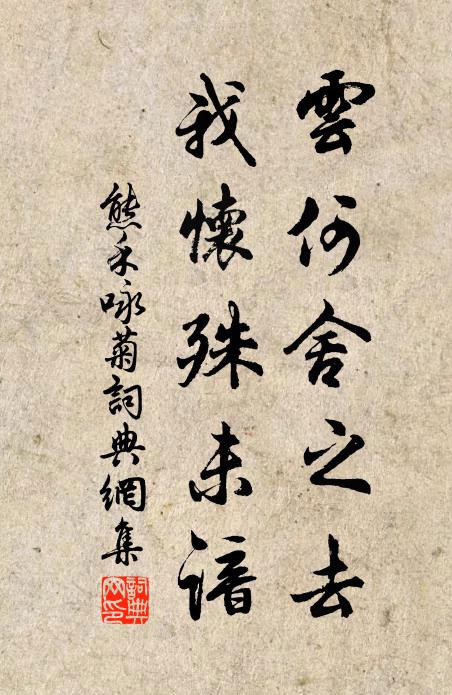 雲何舍之去
我懷殊未諳
熊禾咏菊詞典網集
詞典網印